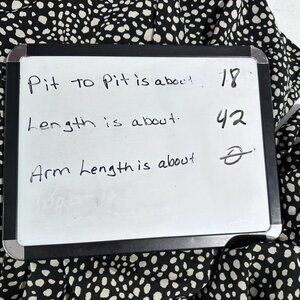 Pit to Pit is about 18
Length is about 42
Arm Length is about 0